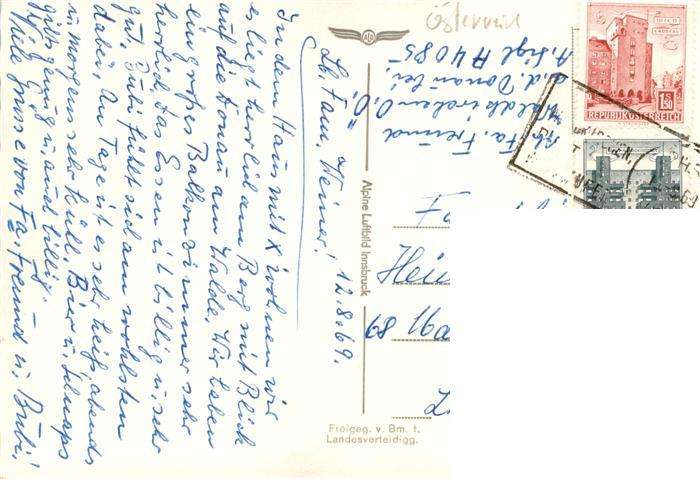 Österreich
Lb. Fam. Heimer! 12.8.69.
In dem Haus mit X wohnen wir
es liegt herrlich am Berg mit Blick
auf die Donau am Walde. Wir haben
ein großes Balkonzimmer sehr
herrlich das Essen ist billig u. sehr
gut. Bubi fühlt sich am wohlsten
dabei. Am Tage ist es sehr heiß, abends
u. morgens sehr kühl. Bier u. Schnaps
gibts genug u. auch billig.
Viele Grüsse von Fa. Freund u. Bubi.
Fa. Freund
Waldkirchen O.Ö.
a.d. Donau bei
A. Sigl A 4085
Alpine Luftbild Innsbruck
Freigeg. v. Bm. f.
Landesverteidigg.
1.50
REPUBLIK ÖSTERREICH
F
Hei
89